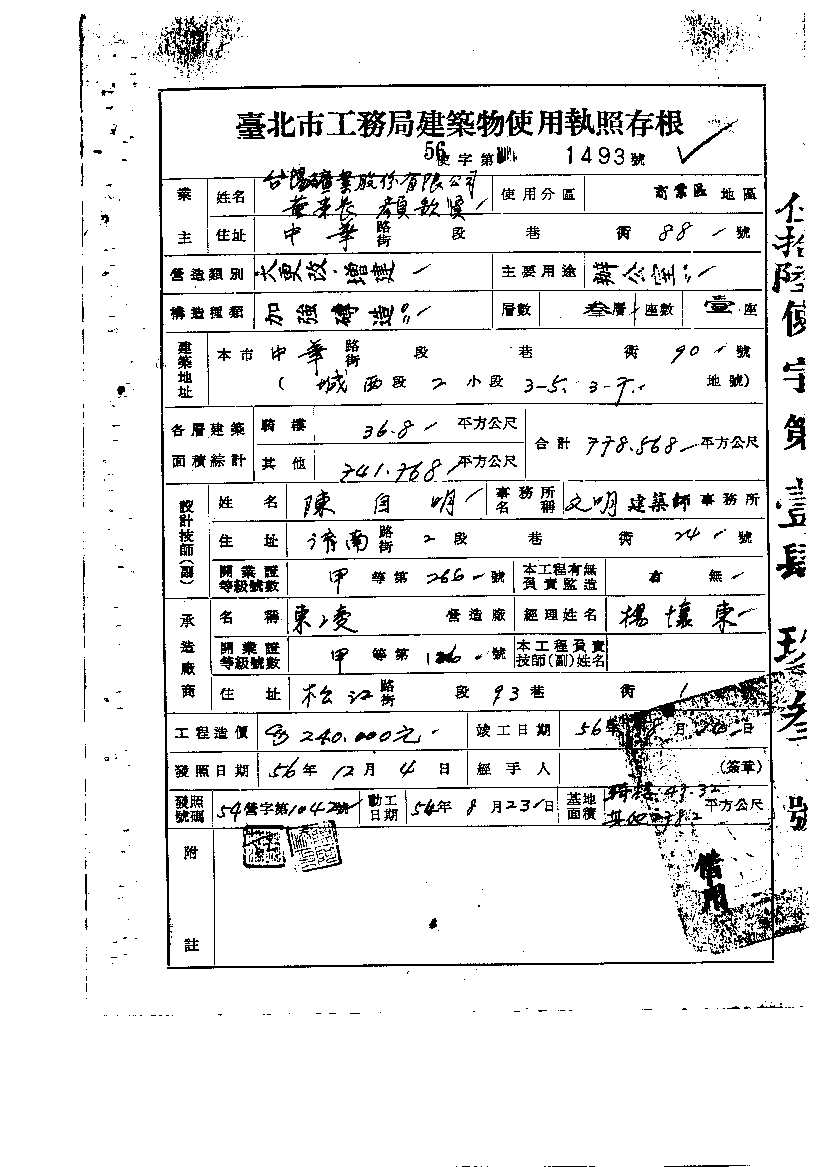 臺北市工務局建築物使用執照存根
56使字第 1493號
業主 姓名 台陽礦業股份有限公司 董事長 顏欽賢 使用分區 商業區 地區
住址 中華 路街 段 巷 街 88 號
營造類別 大更改、增建 主要用途 辦公室
構造種類 加強磚造 層數 叁層 座數 壹座
建築地址 本市 中華 路街 段 巷 街 90 號
( 城西段 2 小段 3-5. 地號)
各層建築面積綜計 騎樓 36.8 平方公尺 合計 778.568 平方公尺
其他 741.768 平方公尺
設計技師(副) 姓名 陳自明 事務所名稱 文明建築師 事務所
住址 濟南 路街 2段 巷 街 24 號
開業證等級號數 甲 等第 266 號 本工程有無負責監造 有 無
承造廠商 名稱 東凌 營造廠 經理姓名 楊懷東
開業證等級號數 甲 等第 號 本工程負責技師(副)姓名
住址 松江 路街 段 93巷 街 1 號
工程造價 240.000元 竣工日期 56年 月 日
發照日期 56年 12月 4日 經手人 (簽章)
發照號碼 54營字第1042號 動工日期 54年 8月23日 基地面積 騎樓 49.32 其他 238.2 平方公尺
附註
借用
伍拾陸使字第壹肆玖叁號